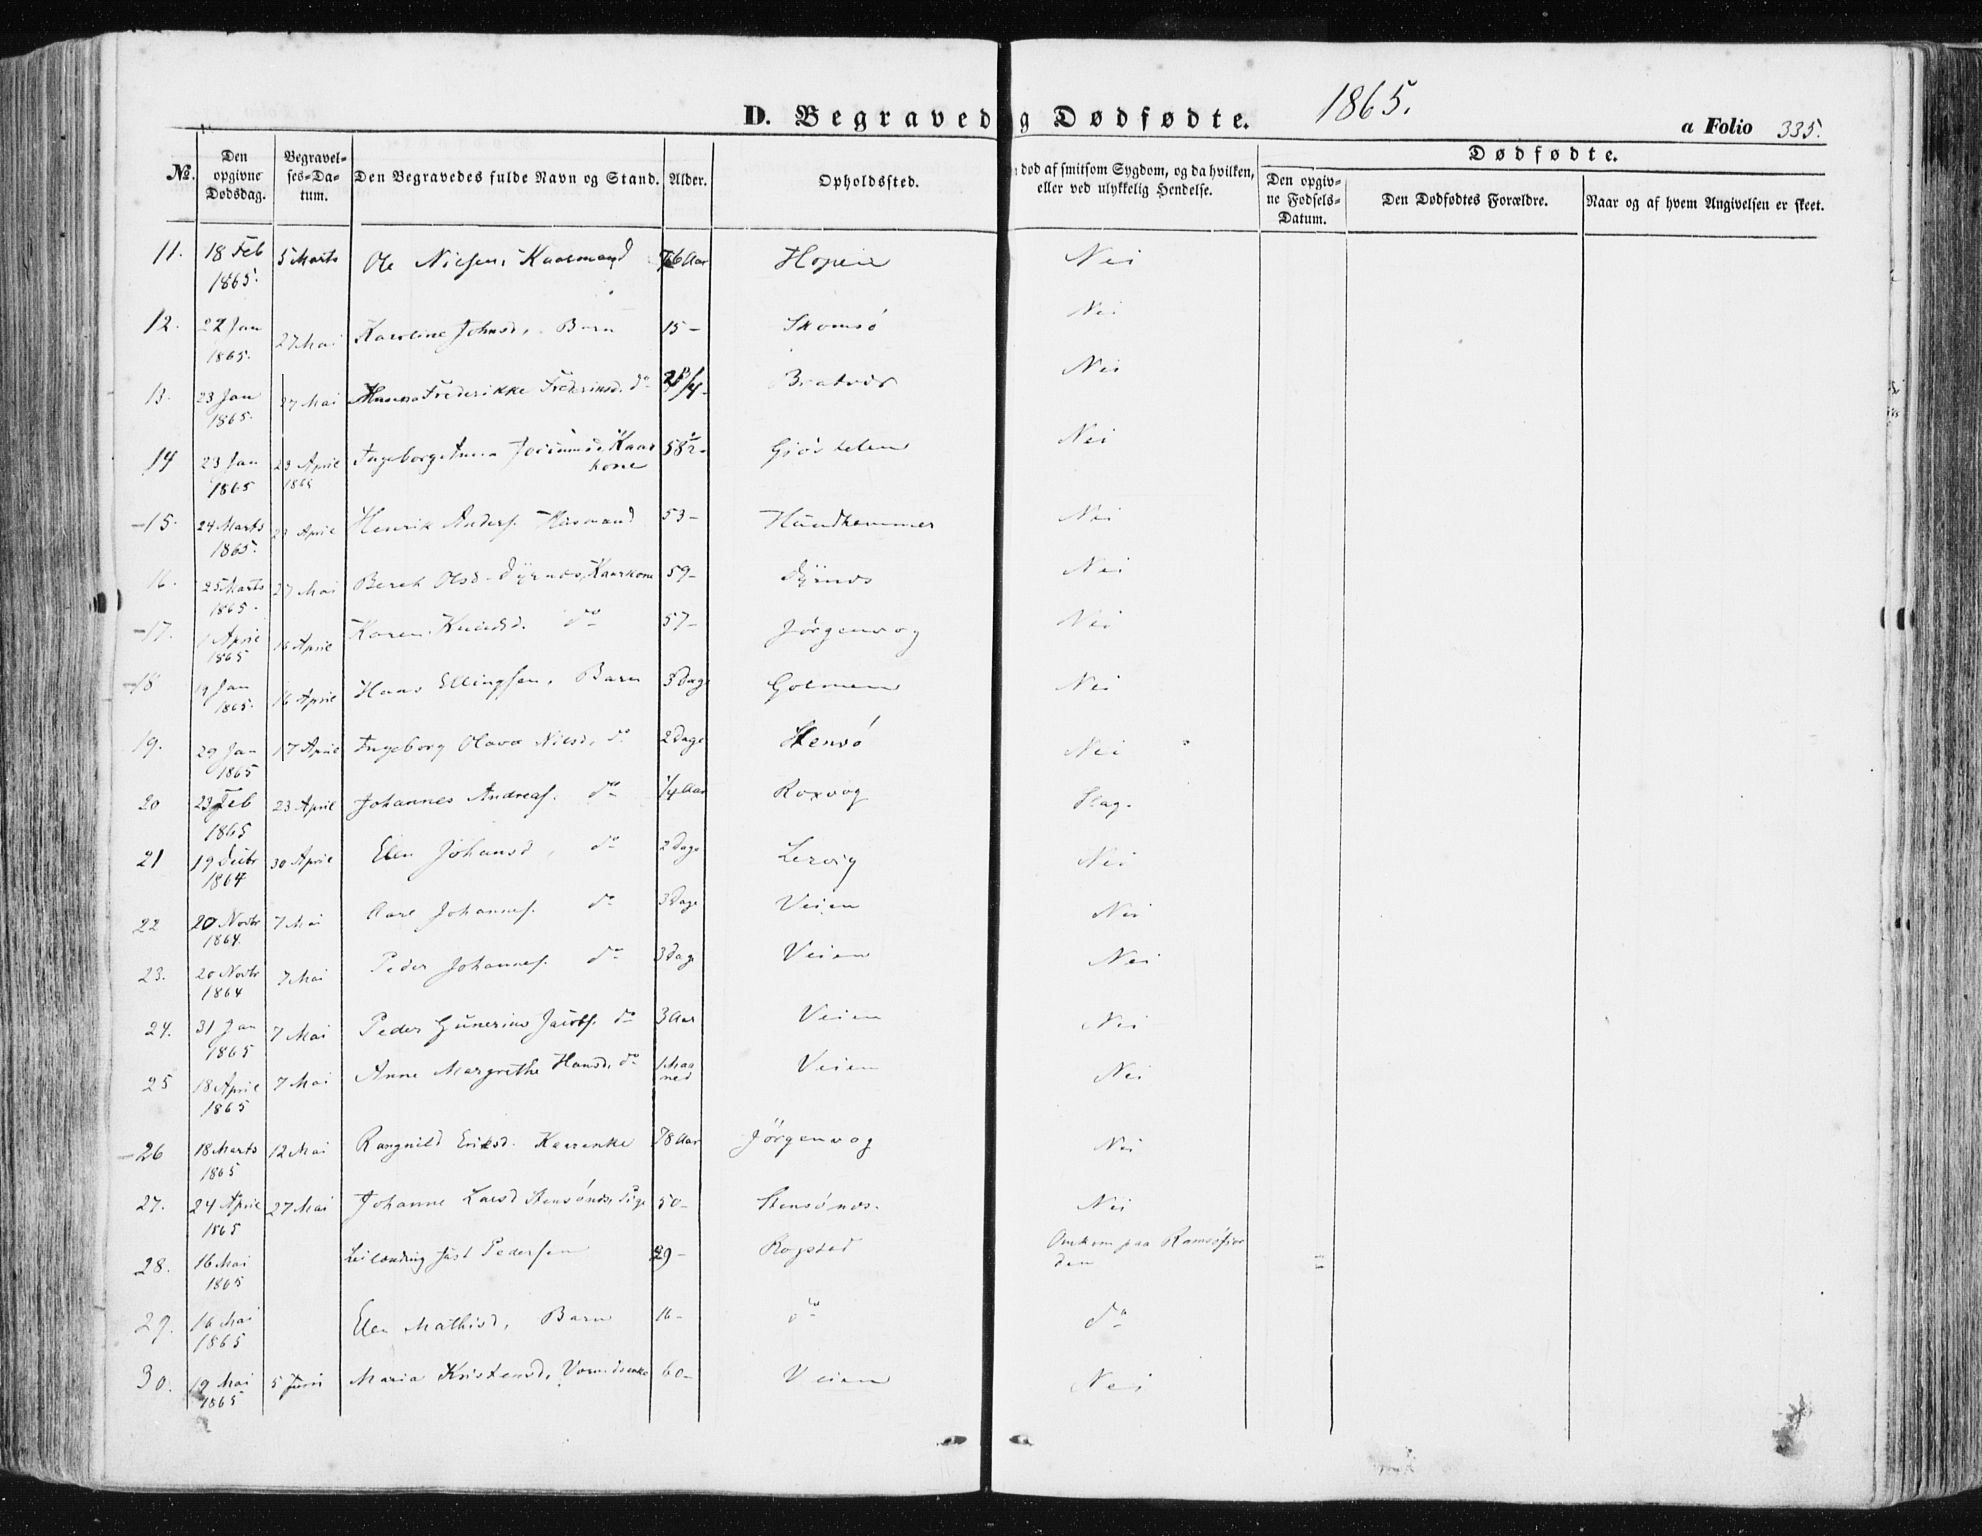 D. Begravede og Dødfødte. 1865.
a Folio 335.
№. Den opgivne Dødsdag. Begravelses=Datum. Den Begravedes fulde Navn og Stand. Alder. Opholdssted. død af smitsom Sygdom, og da hvilken, eller ved ulykkelig Hendelse. Dødfødte. Den opgivne Fødsels=Datum. Den Dødfødtes Forældre. Naar og af hvem Angivelsen er skeet.
11. 18 Feb 1865. 5 Marts Ole Nielsen, Kaarmand 76 Aar Nei
12. 22 Jan 1865. 27 Mai Karoline Johnsd. Barn 15 - Skomsø Nei
13. 23 Jan 1865. 27 Mai Frederikke do Bratvær Nei
14 23 Jan 1865 23 April 1865 Kaarkone 58½ - Nei
15. 24 Marts 1865. 23 April Henrik Anders. Huusmand 53 - Hundhammer Nei
16. 25 Marts 1865. 27 Mai Berek Olsd. Dyrnæs, Kaarkone 59 - Dyrnæs Nei
17. 1 April 1865 16 April Karen Knudsd. do 57 - Jørgenvog Nei
18 19 Jan 1865. 16 April Hans Ellingsen, Barn 3 Dage Golmen Nei
19. 29 Jan 1865 17 April Ingeborg Olava Nilsd. do 2 Dage Stensø Nei
20 23 Feb 1865 23 April Johannes Andreas. do ¼ Aar Roxvog Slag.
21 19 Decbr 1864 30 April Elen Johansd, do 2 Dage Lervig Nei
22 20 Novbr 1864. 7 Mai Carl Johannes. do 3 Dage Veien Nei
23. 20 Novbr 1864 7 Mai Peder Johannes. do 3 Dage Veien Nei
24. 31 Jan 1865 7 Mai Peder Gunerius Jacobs. do 3 Aar Veien Nei
25 18 April 1865 7 Mai Anne Margrethe Hansd, do 1 Maaned Veien Nei
26 18 Marts 1865 12 Mai Rangnild Eriksd. Kaarenke 78 Aar Jørgenvog Nei
27. 24 April 1865 27 Mai Johanne Larsd Stensønæs, Pige 50 - Stensønæs. Nei
28. 16 Mai 1865 Leilænding Just Pedersen 29 - Rogsted Omkom paa Ramsøfjorden
29. 16 Mai 1865 Elen Mathisd, Barn 16 - do do
30. 19 Mai 1865 5 Juni Maria Kristensd, 60 - Veien Nei